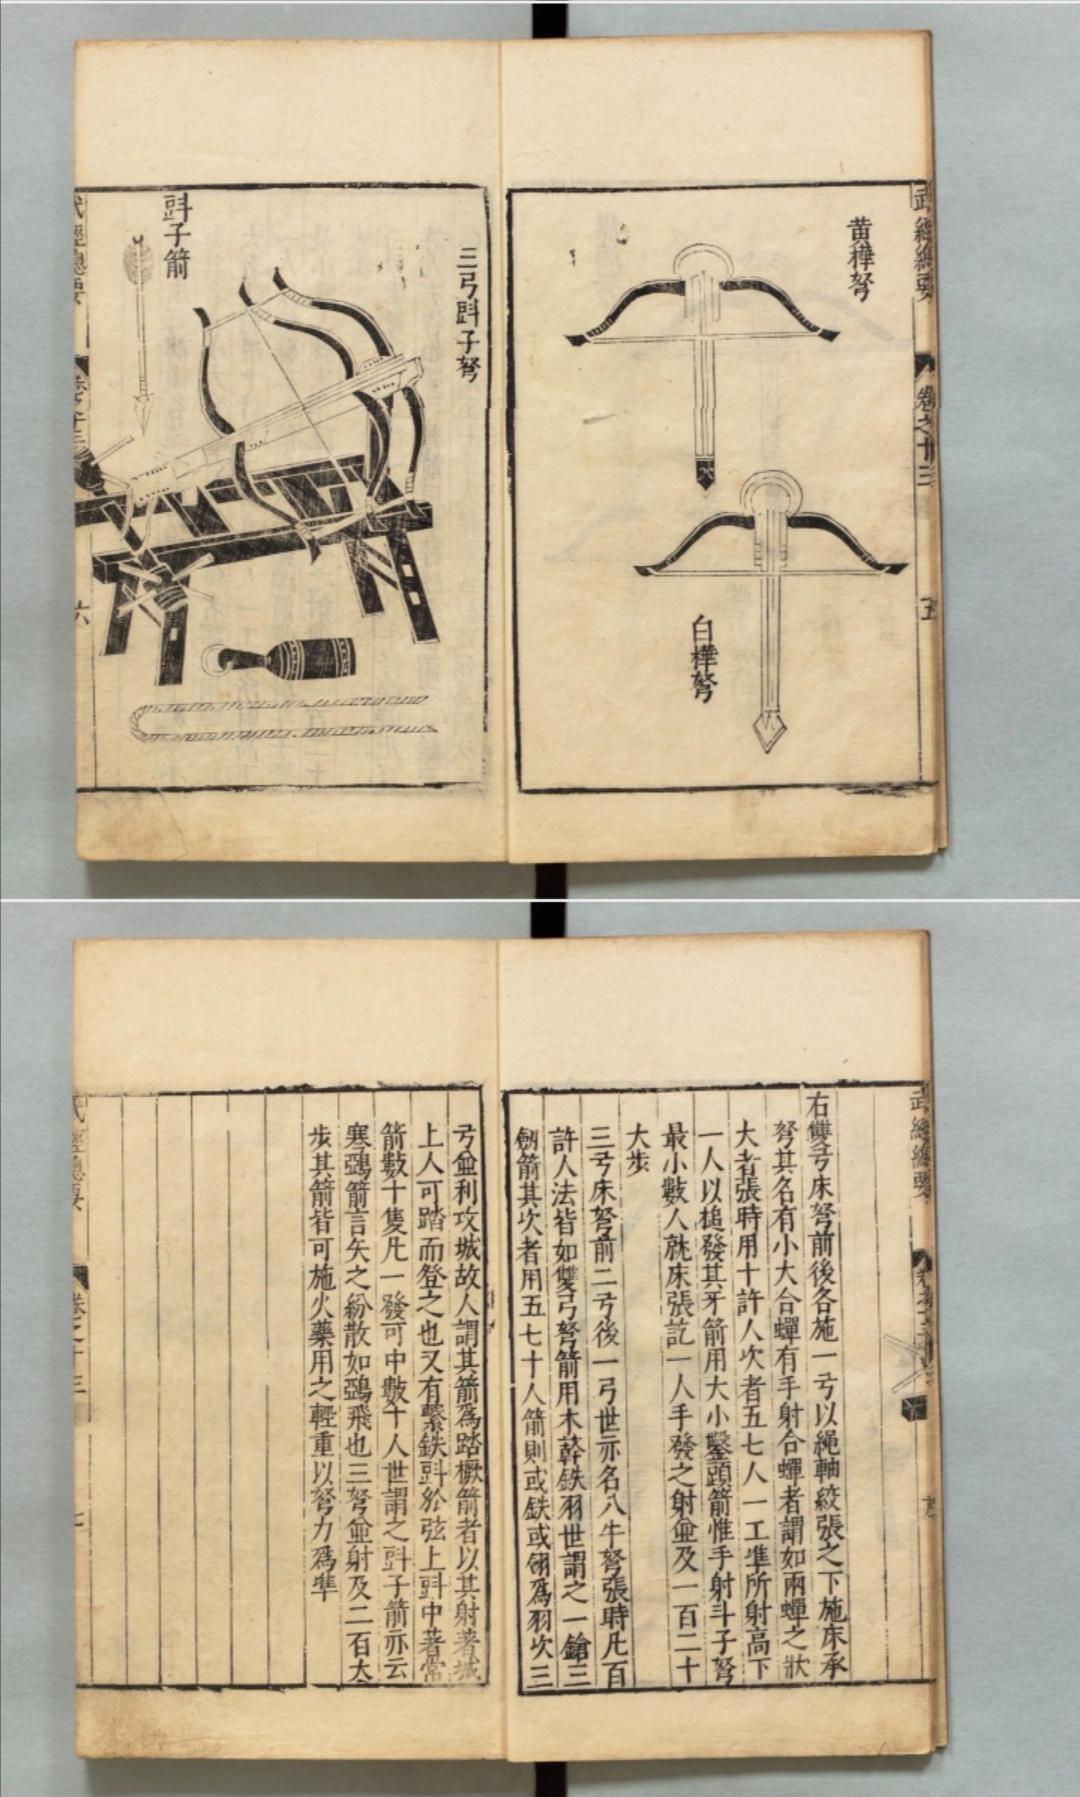 黄樺弩
白樺弩
三弓㪷子弩
㪷子箭
六
五
右雙弓床弩前後各施一弓以繩軸絞張之下施床承
弩其名有小大合蟬有手射合蟬者謂如兩蟬之狀
大者張時用十許人次者五七人一工準所射高下
一人以槌發其牙箭用大小鑿頭箭惟手射斗子弩
最小數人就床張訖一人手發之射並及一百二十
大步
三弓床弩前二弓後一弓世亦名八牛弩張時凡百
許人法皆如雙弓弩箭用木簳鉄羽世謂之一鎗三
劒箭其次者用五七十人箭則或鉄或翎爲羽次三
弓並利攻城故人謂其箭爲踏橛箭者以其射著城
上人可踏而登之也又有繫鉄㪷於弦上㪷中著常
箭數十隻凡一發可中數十人世謂之㪷子箭亦云
寒鵶箭言矢之紛散如鵶飛也三弩並射及二百大
步其箭皆可施火藥用之輕重以弩力爲準